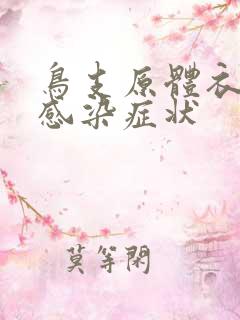 鳥支原體衣
感染症状
莫等閑